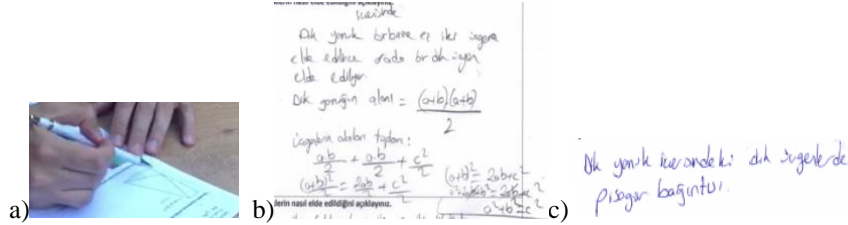 a)
b)
c)
lerin nasıl elde edildiğini açıklayınız.
üzerinde
Dik yamuk birbirine eş iki üçgen
elde edilince orada bir dik üçgen
elde ediliyor.
Dik yamuğun alanı = (a+b).(a+b)
2
üçgenlerin alanları toplamı:
ab/2 + a.b/2 + c²/2
(a+b)²/2 = 2ab/2 + c²/2
(a+b)² = 2ab+c²
a²+b² = c²
lerin nasıl elde edildiğini açıklayınız.
Dik yamuk üzerindeki dik üçgenlerde
pisagor bağıntısı.